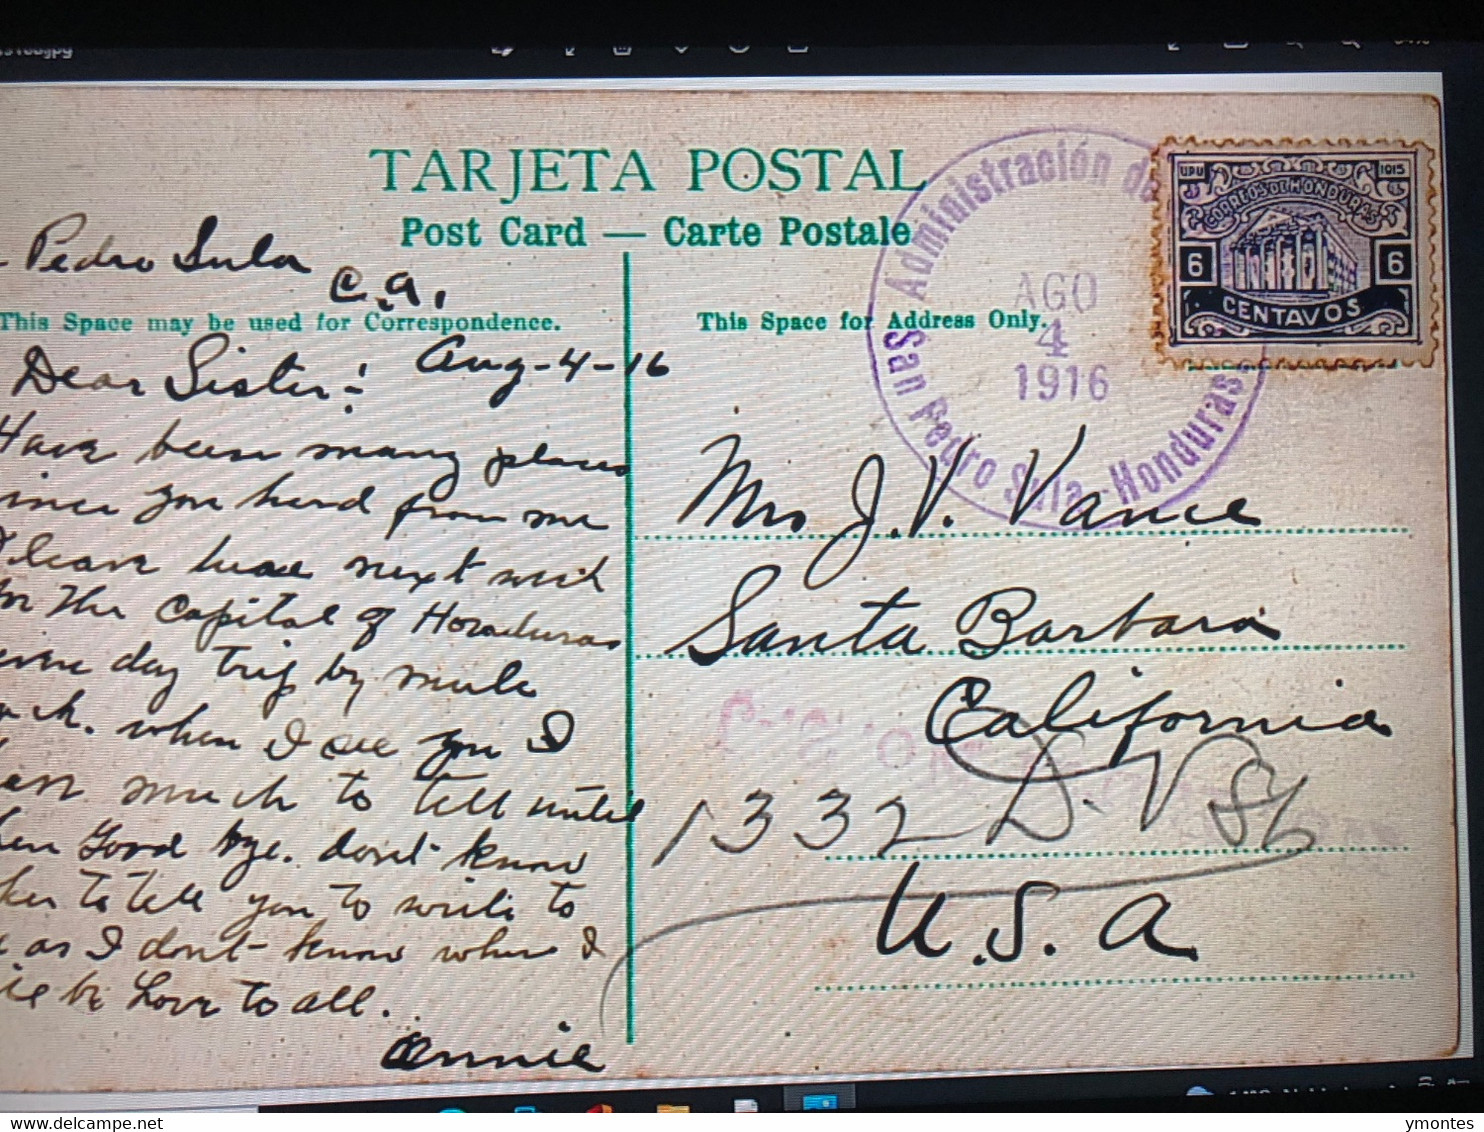 TARJETA POSTAL
Post Card — Carte Postale
Pedro Sula
C.A.
This Space may be used for Correspondence.
Aug-4-16
Dear Sister:
Have been many places
since you heard from me
I leave here next week
for the Capital of Honduras
seven day trip by mule
back. when I see you I
much to tell until
then Good bye. don't know
to tell you to write to
as I don't know where I
be Love to all.
Annie
This Space for Address Only.
Administración de
San Pedro Sula - Honduras
AGO
4
1916
UPU 1915
CORREOS DE HONDURAS
6 6
CENTAVOS
Mrs J. V. Vance
Santa Barbara
California
1332 D. V St
U.S.A
ymontes